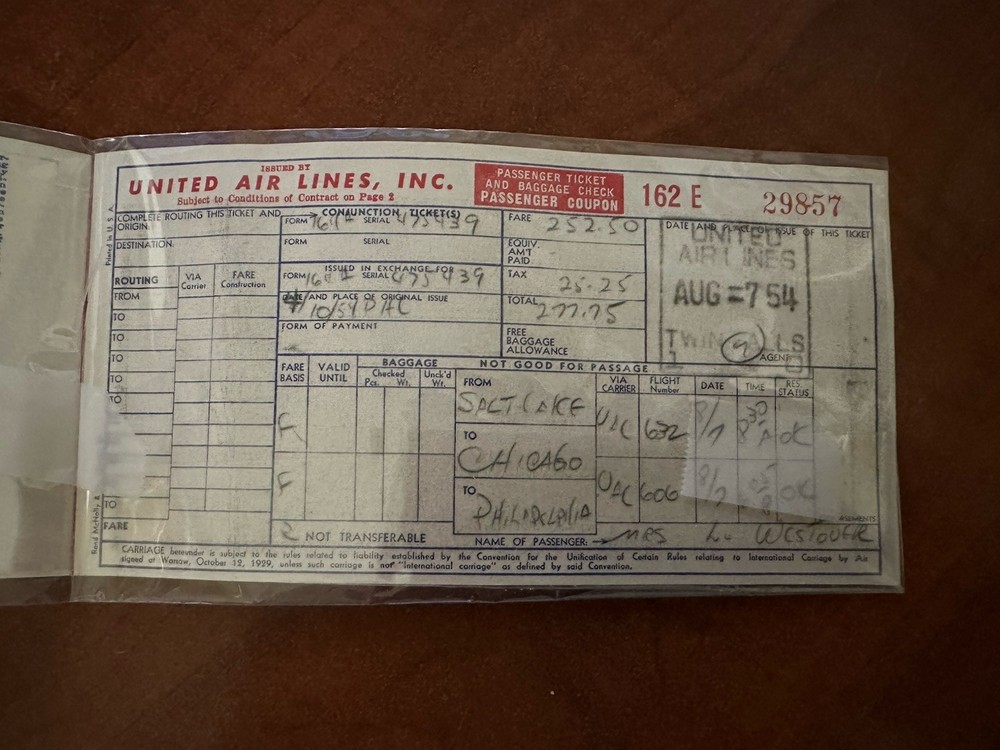 ISSUED BY
UNITED AIR LINES, INC.
Subject to Conditions of Contract on Page 2
PASSENGER TICKET
AND BAGGAGE CHECK
PASSENGER COUPON
162 E
29857
Printed in U. S. A.
COMPLETE ROUTING THIS TICKET AND CONJUNCTION TICKET(S)
ORIGIN
FORM SERIAL 475439
DESTINATION
FORM SERIAL
ROUTING
VIA Carrier
FARE Construction
ISSUED IN EXCHANGE FOR
FORM SERIAL 475439
FROM
DATE AND PLACE OF ORIGINAL ISSUE
TO
TO
TO
TO
TO
TO
FARE
FORM OF PAYMENT
FARE 252.50
EQUIV. AM'T PAID
TAX 25.25
TOTAL 277.75
FREE BAGGAGE ALLOWANCE
DATE AND PLACE OF ISSUE OF THIS TICKET
UNITED
AIR LINES
AUG =7 54
TWIN FALLS
AGENT
FARE BASIS
VALID UNTIL
BAGGAGE
Checked
Pcs. Wt.
Unck'd Wt.
NOT GOOD FOR PASSAGE
VIA CARRIER
FLIGHT Number
DATE
TIME
RES. STATUS
F
FROM
SALT LAKE
UAL 632 8/7 OK
TO
CHICAGO
F
UAL 606 OK
TO
PHILADELPHIA
NOT TRANSFERABLE
NAME OF PASSENGER
MRS L. WESTOVER
Rand McNally
CARRIAGE hereunder is subject to the rules related to liability established by the Convention for the Unification of Certain Rules relating to International Carriage by Air
signed at Warsaw, October 12, 1929, unless such carriage is not "international carriage" as defined by said Convention.